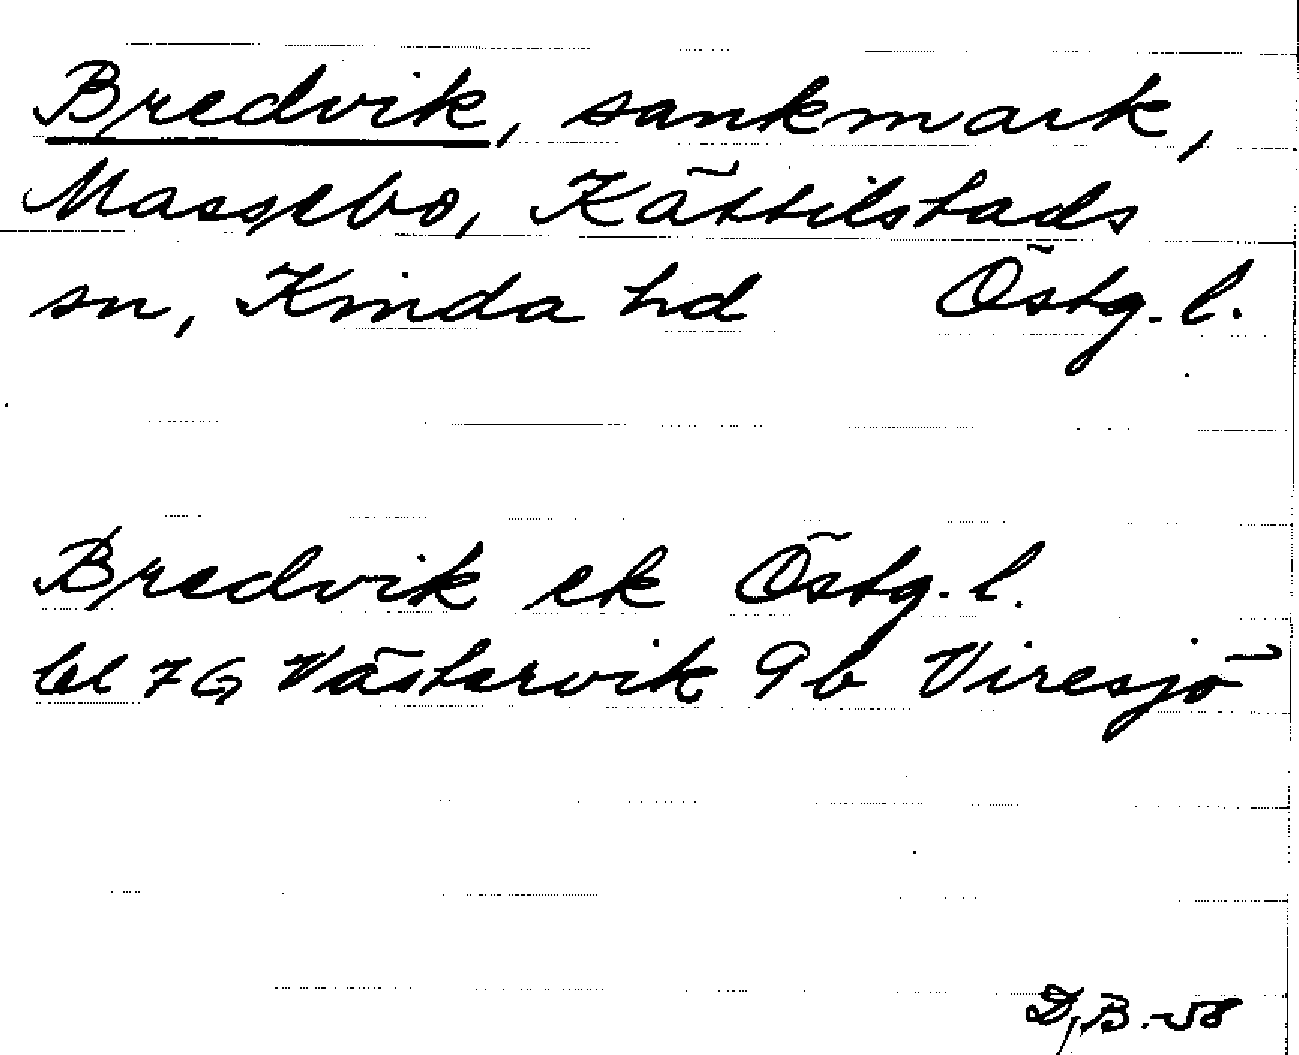 Bredvik, sankmark,
Massebo, Kättilstads
sn, Kinda hd Östg. l.
Bredvik ek Östg. l.
bl 7G Västervik 9b Viresjö
D, B. -58